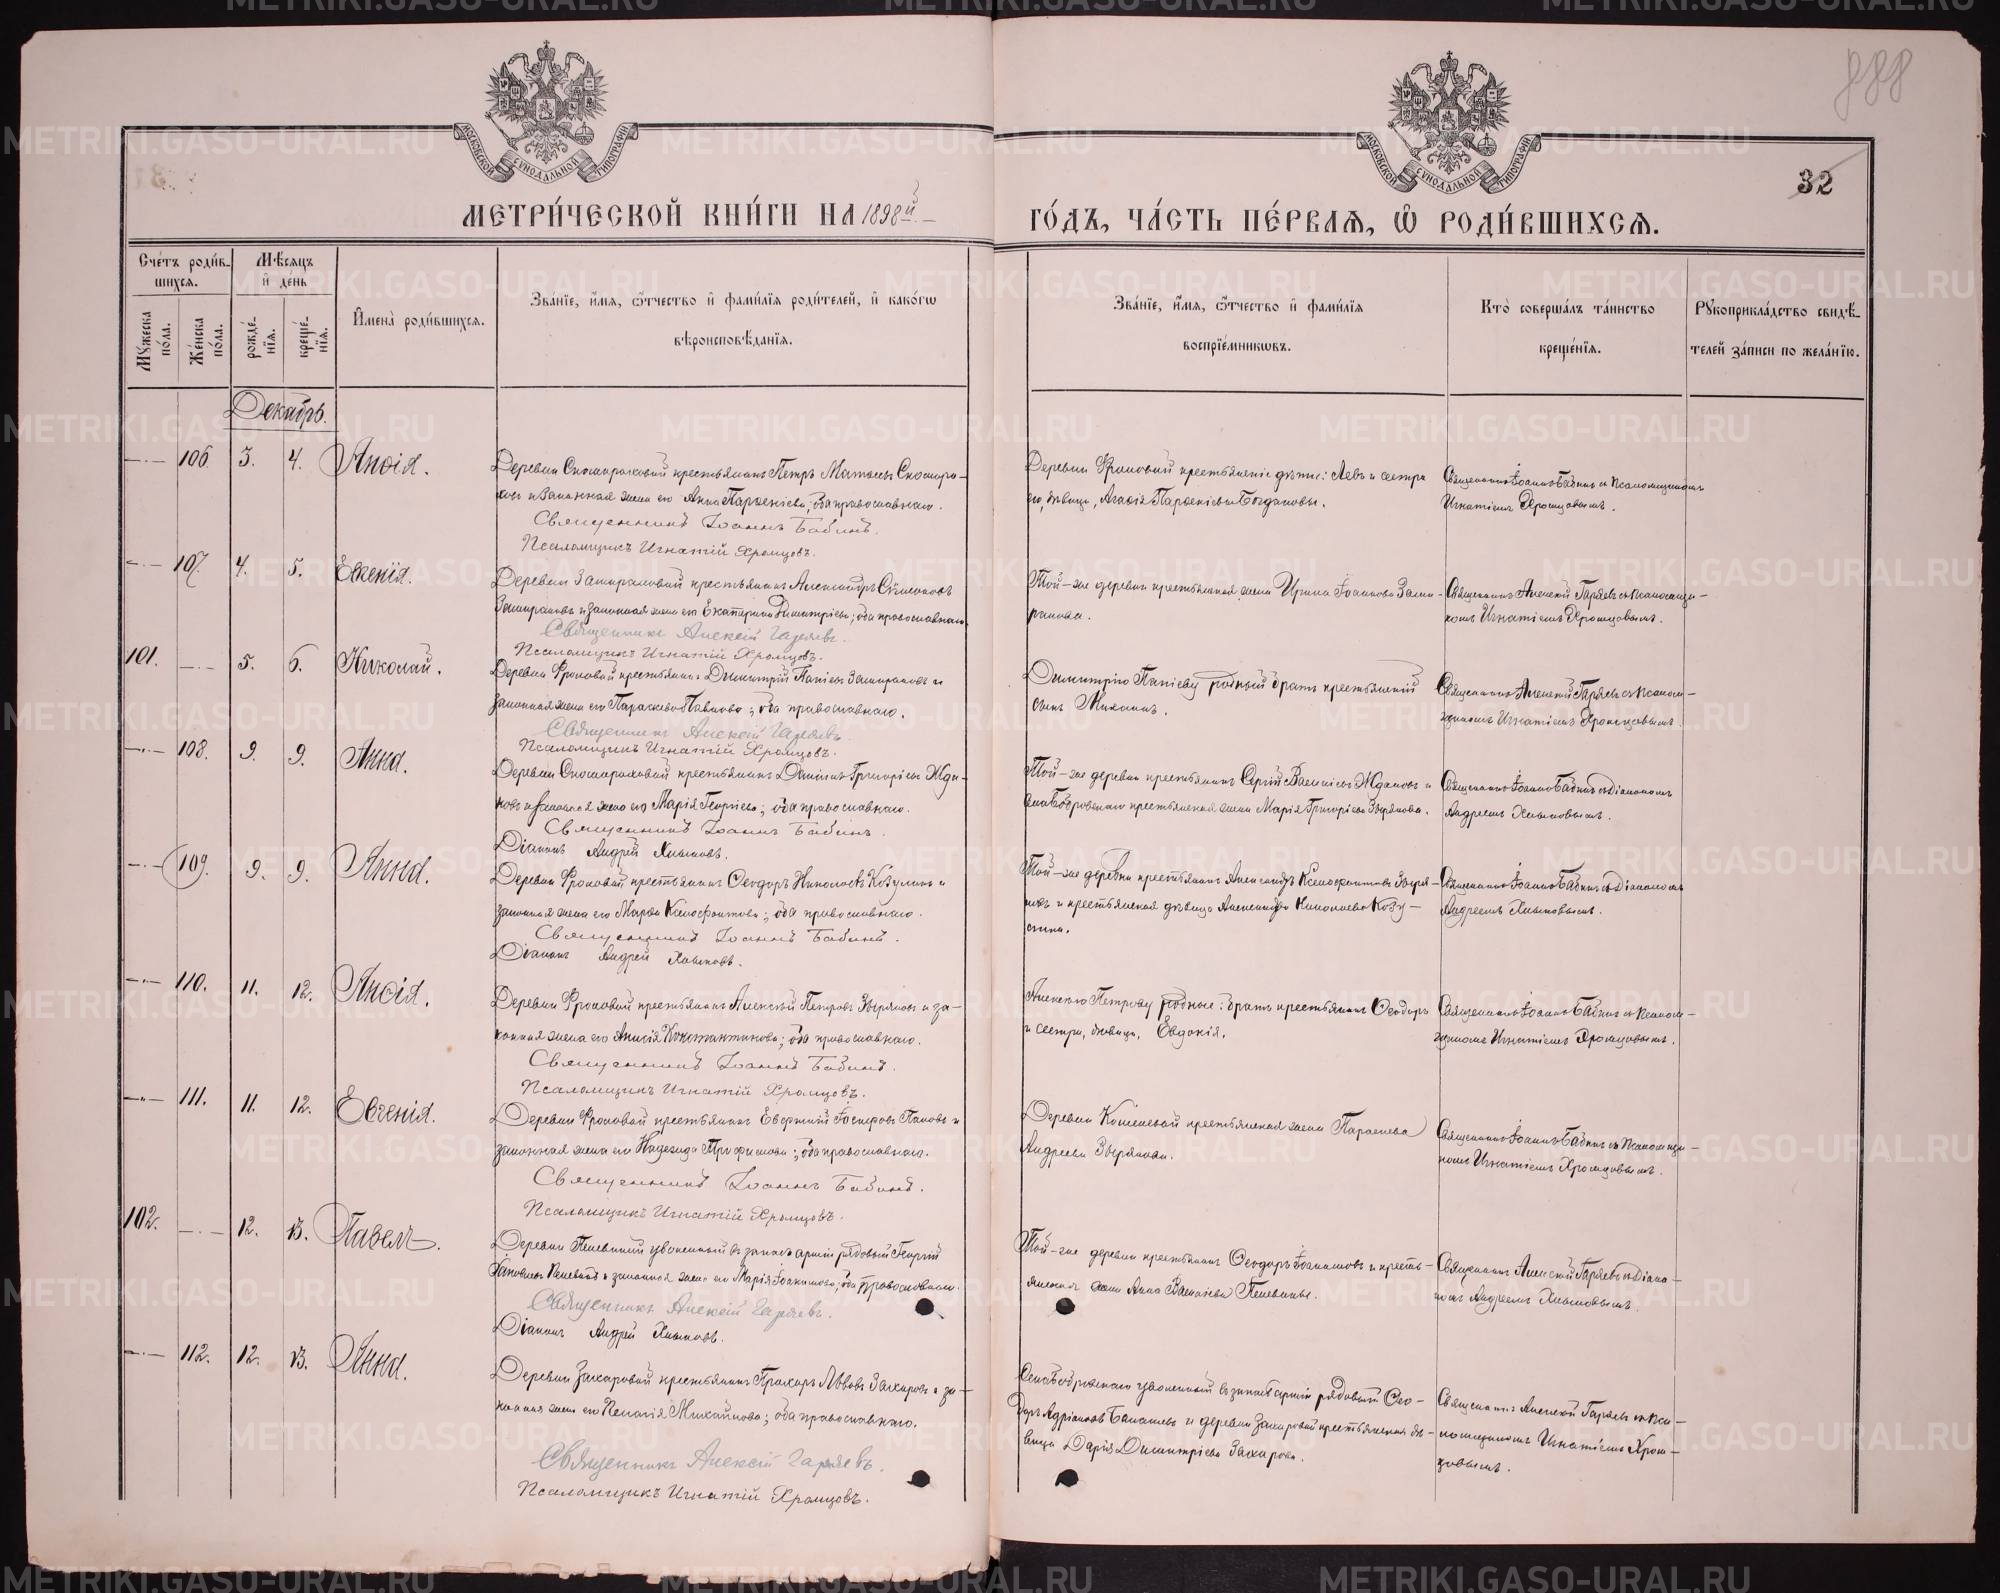 МЕТРИ́ЧЕСКОЙ КНИ́ГИ НА 1898й
ГО́ДЪ, ЧА́СТЬ ПЕ́РВАѦ, Ѿ РОДИ́ВШИХСѦ.
32
888
МОСКОВСКОЙ СѴНОДАЛЬНОЙ ТИПОГРАФІИ
МОСКОВСКОЙ СѴНОДАЛЬНОЙ ТИПОГРАФІИ
Сче́тъ роди́вшихсѧ.
Мѹ́жеска по́ла.
Же́нска по́ла.
Мѣ́сѧцъ и҆ де́нь
рожде́нїѧ.
креще́нїѧ.
И҆мена̀ роди́вшихсѧ.
Зва́нїе, и҆́мѧ, ѻ҆́тчество и҆ фами́лїѧ роди́телей, и҆ како́гѡ
вѣроисповѣ́данїѧ.
Зва́нїе, и҆́мѧ, ѻ҆́тчество и҆ фами́лїѧ
воспрїе́мникѡвъ.
Кто̀ соверша́лъ та́инство
креще́нїѧ.
Рѹкоприкла́дство свидѣ́-
телей за́писи по жела́нїю.
Декабрь.
106. 3. 4. Анѳія.
Деревни Скоморохавой крестьянинъ Петръ
и законная жена его Анна Парѳеніева; оба православнаго.
Священникъ Іоаннъ Бабинъ.
Псаломщикъ Игнатій Хромцовъ.
Деревни Фроловой крестьянскіе дѣти: Левъ и сестра
его, дѣвица, Агаѳія Парѳеніевы Богдановы.
Священникъ Іоаннъ Бабинъ съ Псаломщикомъ
Игнатіемъ Хромцовымъ.
107. 4. 5. Евгенія.
Деревни Замираловой крестьянинъ Александръ
Замираловъ и законная жена его Екатерина Димитріева; оба православнаго.
Священникъ Алексій Гаряевъ.
Псаломщикъ Игнатій Хромцовъ.
Той-же деревни крестьянская жена Ирина Іоаннова Зами-
ралова.
Священникъ Алексій Гаряевъ съ Псаломщи-
комъ Игнатіемъ Хромцовымъ.
101. 5. 6. Николай.
Деревни Фроловой крестьянинъ Димитрій Замираловъ и
законная жена его Параскева Павлова; оба православнаго.
Священникъ Алексій Гаряевъ.
Псаломщикъ Игнатій Хромцовъ.
Димитрію родный братъ крестьянскій
сынъ Михаилъ.
Священникъ Алексій Гаряевъ съ Псалом-
щикомъ Игнатіемъ Хромцовымъ.
108. 9. 9. Анна.
Деревни крестьянинъ Даніилъ Григорьевъ Жда-
новъ и законная жена его Марія Георгіева; оба православнаго.
Священникъ Іоаннъ Бабинъ.
Діаконъ Андрей Хлыновъ.
Той-же деревни крестьянинъ Сергій Васильевъ Ждановъ и
села Бобровскаго крестьянская жена Марія Григорьева Звѣрякова.
Священникъ Іоаннъ Бабинъ съ Діакономъ
Андреемъ Хлыновымъ.
109. 9. 9. Анна.
Деревни Фроловой крестьянинъ Ѳеодоръ Николаевъ и
законная жена его Марѳа Ксенофонтова; оба православнаго.
Священникъ Іоаннъ Бабинъ.
Діаконъ Андрей Хлыновъ.
Той-же деревни крестьянинъ Александръ Ксенофонтовъ Звѣря-
ковъ и крестьянская дѣвица Александра Николаева
Священникъ Іоаннъ Бабинъ съ Діакономъ
Андреемъ Хлыновымъ.
110. 11. 12. Анѳія.
Деревни Фроловой крестьянинъ Алексѣй Петровъ Звѣряковъ и за-
конная жена его Анисія Константинова; оба православнаго.
Священникъ Іоаннъ Бабинъ.
Псаломщикъ Игнатій Хромцовъ.
Алексѣю Петрову родные: братъ крестьянинъ Ѳеодоръ
и сестра, дѣвица, Евдокія.
Священникъ Іоаннъ Бабинъ съ Псалом-
щикомъ Игнатіемъ Хромцовымъ.
111. 11. 12. Евгенія.
Деревни Фроловой крестьянинъ Евфимій Іосифовъ Пановъ и
законная жена его Надежда Трофимова; оба православнаго.
Священникъ Іоаннъ Бабинъ.
Псаломщикъ Игнатій Хромцовъ.
Деревни Кошелевой крестьянская жена Параскева
Андреева Звѣрякова.
Священникъ Іоаннъ Бабинъ съ Псаломщи-
комъ Игнатіемъ Хромцовымъ.
102. 12. 13. Павелъ.
Деревни уволенный въ запасъ арміи рядовый Георгій
и законная жена его Марія Іоакимова; оба православнаго.
Священникъ Алексій Гаряевъ.
Діаконъ Андрей Хлыновъ.
Той-же деревни крестьянинъ Ѳеодоръ и кресть-
янская жена Анна Васильева
Священникъ Алексій Гаряевъ съ Діако-
номъ Андреемъ Хлыновымъ.
112. 12. 13. Анна.
Деревни Захаровой крестьянинъ Прохоръ Львовъ Захаровъ и за-
конная жена его Пелагія Михайлова; оба православнаго.
Священникъ Алексій Гаряевъ.
Псаломщикъ Игнатій Хромцовъ.
Села Бобровскаго уволенный въ запасъ арміи рядовый Ѳео-
доръ Адріановъ и деревни Захаровой крестьянская дѣ-
вица Дарія Димитріева Захарова.
Священникъ Алексій Гаряевъ съ Пса-
ломщикомъ Игнатіемъ Хром-
цовымъ.
METRIKI.GASO-URAL.RU